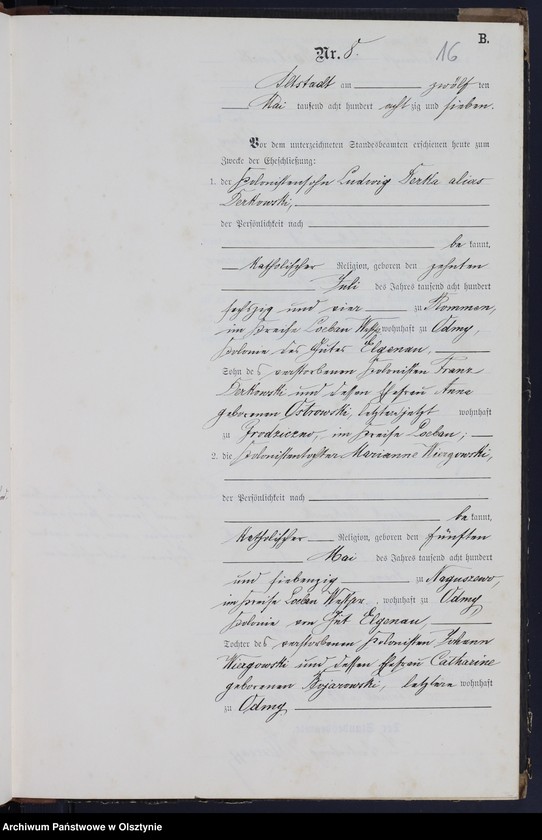 B.
Nr. 8. 16
Altstadt am zwölf ten
Mai tausend acht hundert acht zig und sieben.
Vor dem unterzeichneten Standesbeamten erschienen heute zum
Zwecke der Eheschließung:
1. der Kolonistensohn Ludwig Derka alias
Derkowski,
der Persönlichkeit nach
be kannt,
katholischer Religion, geboren den zehnten
Juli des Jahres tausend acht hundert
sechszig und vier zu Rommen,
im Kreise Loebau Westpr. wohnhaft zu Odmy,
Kolonie des Gutes Elgenau,
Sohn des verstorbenen Kolonisten Franz
Derkowski und dessen Ehefrau Anna
geborenen Ostrowski, letztere jetzt wohnhaft
zu Brodziczno, im Kreise Loebau;
2. die Kolonistentochter Marianne Wiergowski,
der Persönlichkeit nach
be kannt,
katholischer Religion, geboren den fünften
Mai des Jahres tausend acht hundert
und siebenzig zu Naguszewo,
im Kreise Loebau Westpr., wohnhaft zu Odmy
Kolonie von Gut Elgenau,
Tochter des verstorbenen Kolonisten Johann
Wiergowski und dessen Ehefrau Catharine
geborenen Bojarowski, letztere wohnhaft
zu Odmy
Archiwum Państwowe w Olsztynie